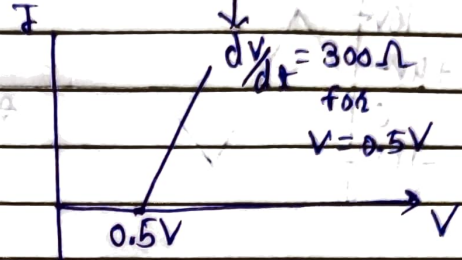 I
dV/dt = 300Ω
for
V = 0.5V
0.5V
V